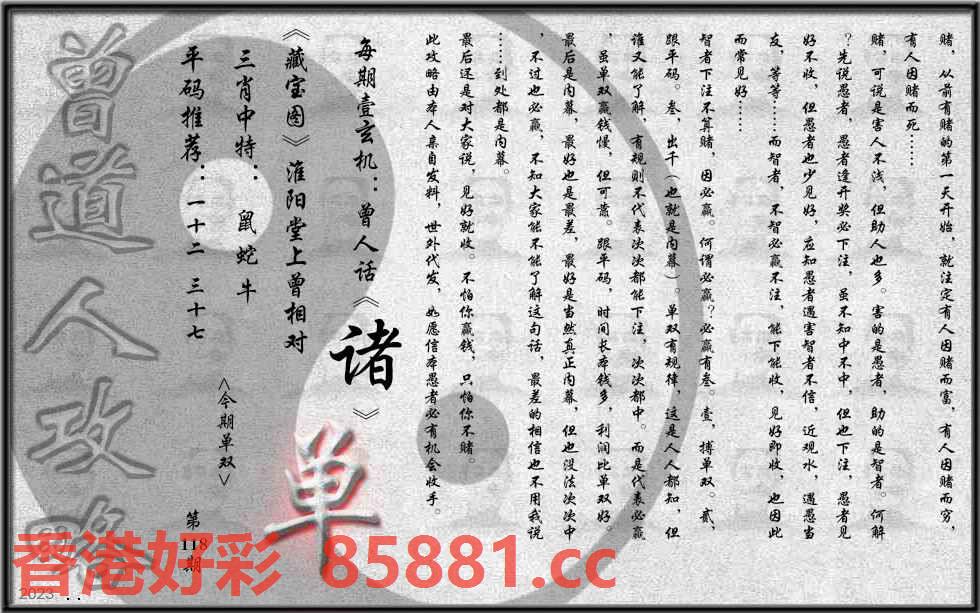 赌，从前有赌的第一天开始，就注定有人因赌而富，有人因赌而穷，
有人因赌而死……
赌，可说是害人不浅，但助人也多。害的是愚者，助的是智者。何解
？先说愚者，愚者逢开奖必下注，虽不知中不中，但也下注，愚者见
好不收，但愚者也少见好，应知愚者遇害智者不信，近观水，遇愚当
友，等等……而智者，不智必赢不注，能下能收，见好即收，也因此
而常见好……
智者下注不算赌，因必赢。何谓必赢？必赢有叁。壹，搏单双。贰，
跟平码。叁，出千（也就是内幕）。单双有规律，这是人人都知，但
谁又能了解，有规则不代表次次都能下注，次次都中。而是代表必赢
，虽单双赢钱慢，但可靠。跟平码，时间长本钱多，利润比单双好。
最后是内幕，最好也是最差，最好是当然真正内幕，但也没法次次中
，不过也必赢，不知大家能不能了解这句话，最差的相信也不用我说
……到处都是内幕。
最后还是对大家说，见好就收。不怕你赢钱，只怕你不赌。
此攻略由本人亲自发料，世外代发，如愿信本愚者必有机会收手。
每期壹玄机：曾人话《诸》
《藏宝图》淮阳堂上曾相对
三肖中特：鼠蛇牛
平码推荐：一十二 三十七
<今期单双>
单
第118期
曾道人攻略
香港好彩 85881.cc
2023